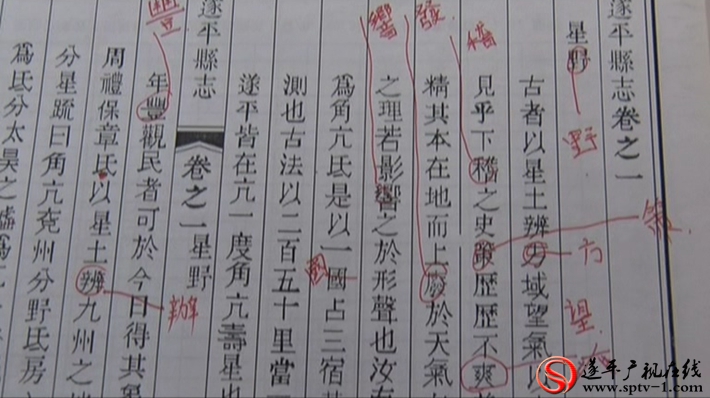 遂平縣志卷之一
星野
古者以星土辨方域望氣以
見乎下稽之史策歷歷不爽
精其本在地而上發於天氣
之理若影響之於形聲也汝
為角亢氐是以一國占三宿
測也古法以二百五十里當一
遂平皆在亢一度角亢壽星也
遂平縣志
卷之一 星野
年豐觀民者可於今日得其
周禮保章氏以星土辨九州之
分星疏曰角亢兗州分野氐房
為氐分太昊之墟為
豐
響
發
稽
野
方
望
國
辦
遂平广视在线
www.sptv-1.com